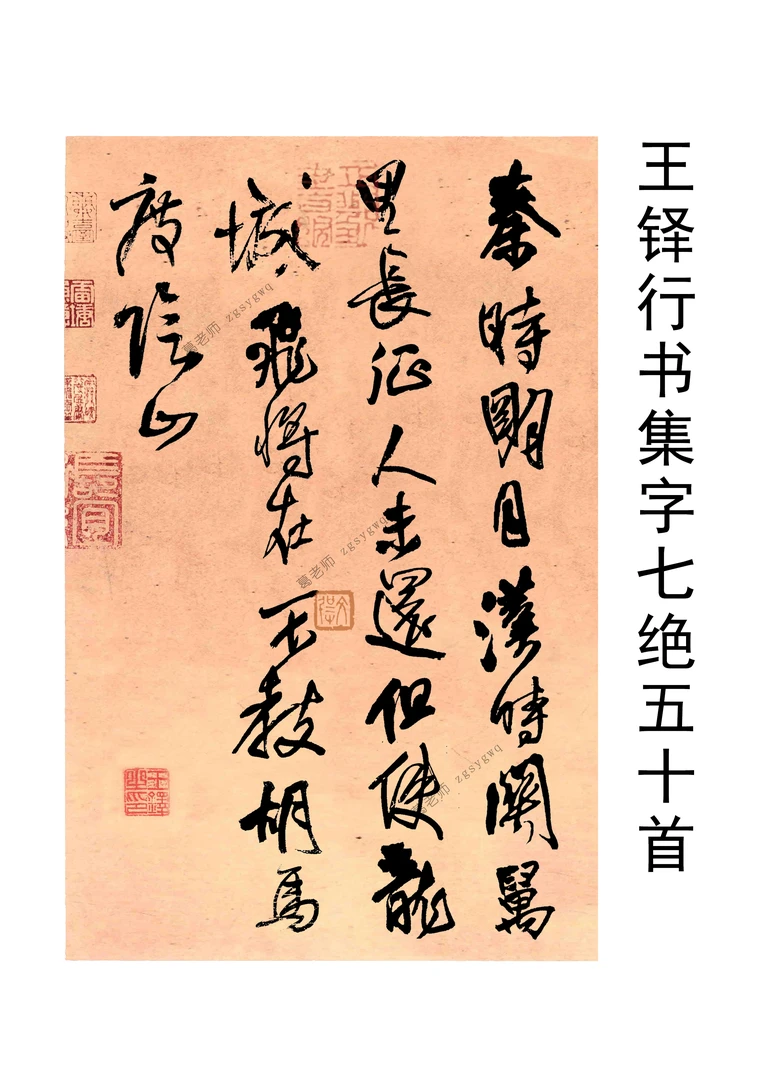 王铎行书集字七绝五十首
秦時明月漢時關萬
里長征人未還但使龍
城飛將在不教胡馬
度陰山
葛老师 zgsygwq
葛老师 zgsygwq
葛老师 zgsygwq
王鐸之印